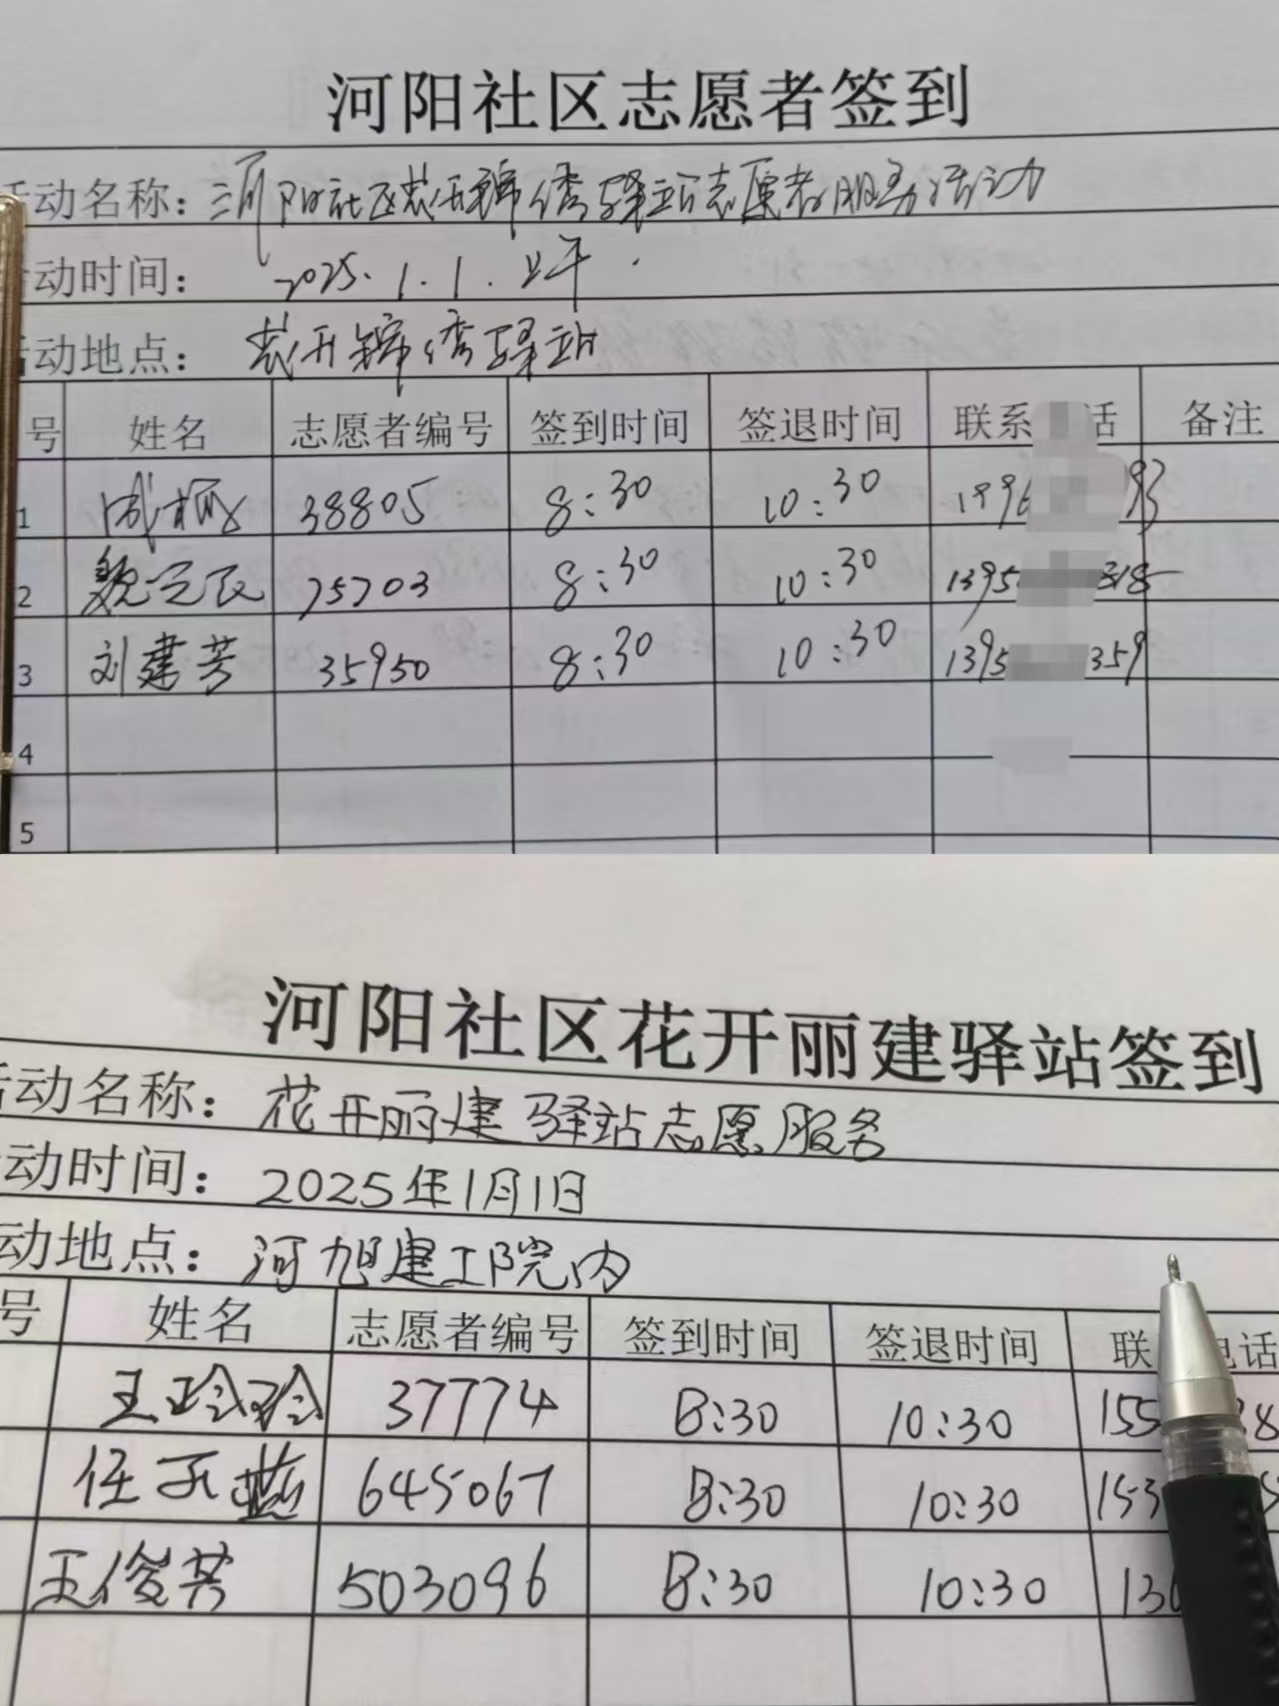 河阳社区志愿者签到
活动名称：河阳社区花开锦绣驿站志愿者服务活动
动时间：2025.1.1.上午.
动地点：花开锦绣驿站
号 姓名 志愿者编号 签到时间 签退时间 联系 话 备注
1 38805 8:30 10:30 93
2 魏 75703 8:30 10:30 1395 318
3 刘建芳 35950 8:30 10:30 1395 359
4
5
河阳社区花开丽建驿站签到
活动名称：花开丽建驿站志愿服务
动时间：2025年1月1日
动地点：河旭建工院内
号 姓名 志愿者编号 签到时间 签退时间 联 电话
王玲玲 37774 8:30 10:30 155 8
任 645067 8:30 10:30 153
王俊芳 503096 8:30 10:30 130